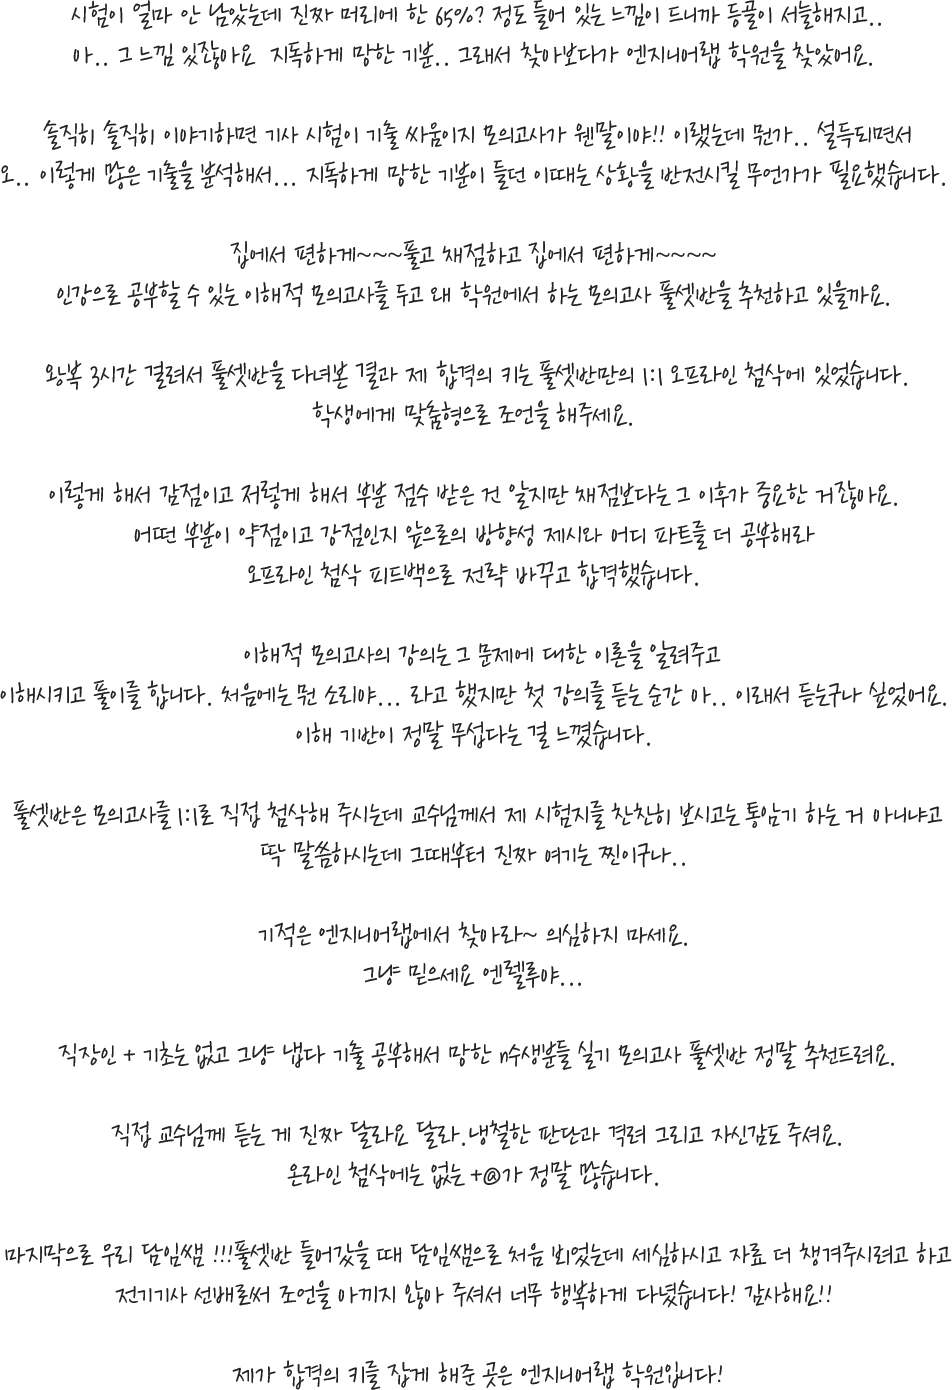 시험이 얼마 안 남았는데 진짜 머리에 한 65%? 정도 들어 있는 느낌이 드니까 등골이 서늘해지고..
아.. 그 느낌 있잖아요 지독하게 망한 기분.. 그래서 찾아보다가 엔지니어랩 학원을 찾았어요.
솔직히 솔직히 이야기하면 기사 시험이 기출 싸움이지 모의고사가 웬말이야!! 이랬는데 뭔가.. 설득되면서
오.. 이렇게 많은 기출을 분석해서... 지독하게 망한 기분이 들던 이때는 상황을 반전시킬 무언가가 필요했습니다.
집에서 편하게~~~풀고 채점하고 집에서 편하게~~~~
인강으로 공부할 수 있는 이해적 모의고사를 두고 왜 학원에서 하는 모의고사 풀셋반을 추천하고 있을까요.
왕복 3시간 걸려서 풀셋반을 다녀본 결과 제 합격의 키는 풀셋반만의 1:1 오프라인 첨삭에 있었습니다.
학생에게 맞춤형으로 조언을 해주세요.
이렇게 해서 감점이고 저렇게 해서 부분 점수 받은 건 알지만 채점보다는 그 이후가 중요한 거잖아요.
어떤 부분이 약점이고 강점인지 앞으로의 방향성 제시와 어디 파트를 더 공부해라
오프라인 첨삭 피드백으로 전략 바꾸고 합격했습니다.
이해적 모의고사의 강의는 그 문제에 대한 이론을 알려주고
이해시키고 풀이를 합니다. 처음에는 뭔 소리야... 라고 했지만 첫 강의를 듣는 순간 아.. 이래서 듣는구나 싶었어요.
이해 기반이 정말 무섭다는 걸 느꼈습니다.
풀셋반은 모의고사를 1:1로 직접 첨삭해 주시는데 교수님께서 제 시험지를 찬찬히 보시고는 통암기 하는 거 아니냐고
딱 말씀하시는데 그때부터 진짜 여기는 찐이구나..
기적은 엔지니어랩에서 찾아라~ 의심하지 마세요.
그냥 믿으세요 엔렐루야...
직장인 + 기초는 없고 그냥 냅다 기출 공부해서 망한 n수생분들 실기 모의고사 풀셋반 정말 추천드려요.
직접 교수님께 듣는 게 진짜 달라요 달라.냉철한 판단과 격려 그리고 자신감도 주셔요.
온라인 첨삭에는 없는 +@가 정말 많습니다.
마지막으로 우리 담임쌤 !!!풀셋반 들어갔을 때 담임쌤으로 처음 뵈었는데 세심하시고 자료 더 챙겨주시려고 하고
전기기사 선배로써 조언을 아끼지 않아 주셔서 너무 행복하게 다녔습니다! 감사해요!!
제가 합격의 키를 잡게 해준 곳은 엔지니어랩 학원입니다!